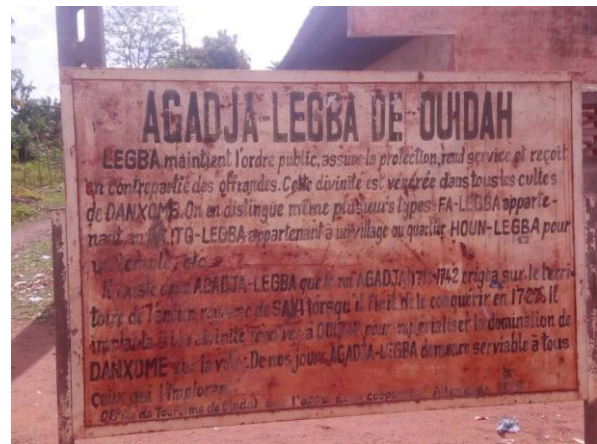 AGADJA-LEGBA DE OUIDAH
LEGBA maintient l'ordre public, assure la protection, rend service et reçoit
en contrepartie des offrandes. Cette divinité est vénérée dans tous les cultes
de DANXOME. On en distingue même plusieurs types: FA-LEGBA apparte-
nant au LEGBA appartenant à un village ou quartier HOUN-LEGBA pour
un temple, etc
Il existe AGADJA-LEGBA que le roi AGADJA 1742 érigea sur le terri-
toire de l'ancien royaume de SAVI lorsqu'il finit de le conquérir en 1727. Il
implanta divinité à OUIDAH pour matérialiser la domination de
DANXOME sur la ville. De nos jours, AGADJA-LEGBA demeure serviable à tous
ceux qui l'implorent
Office de Tourisme de Ouidah l'appui de la coopération